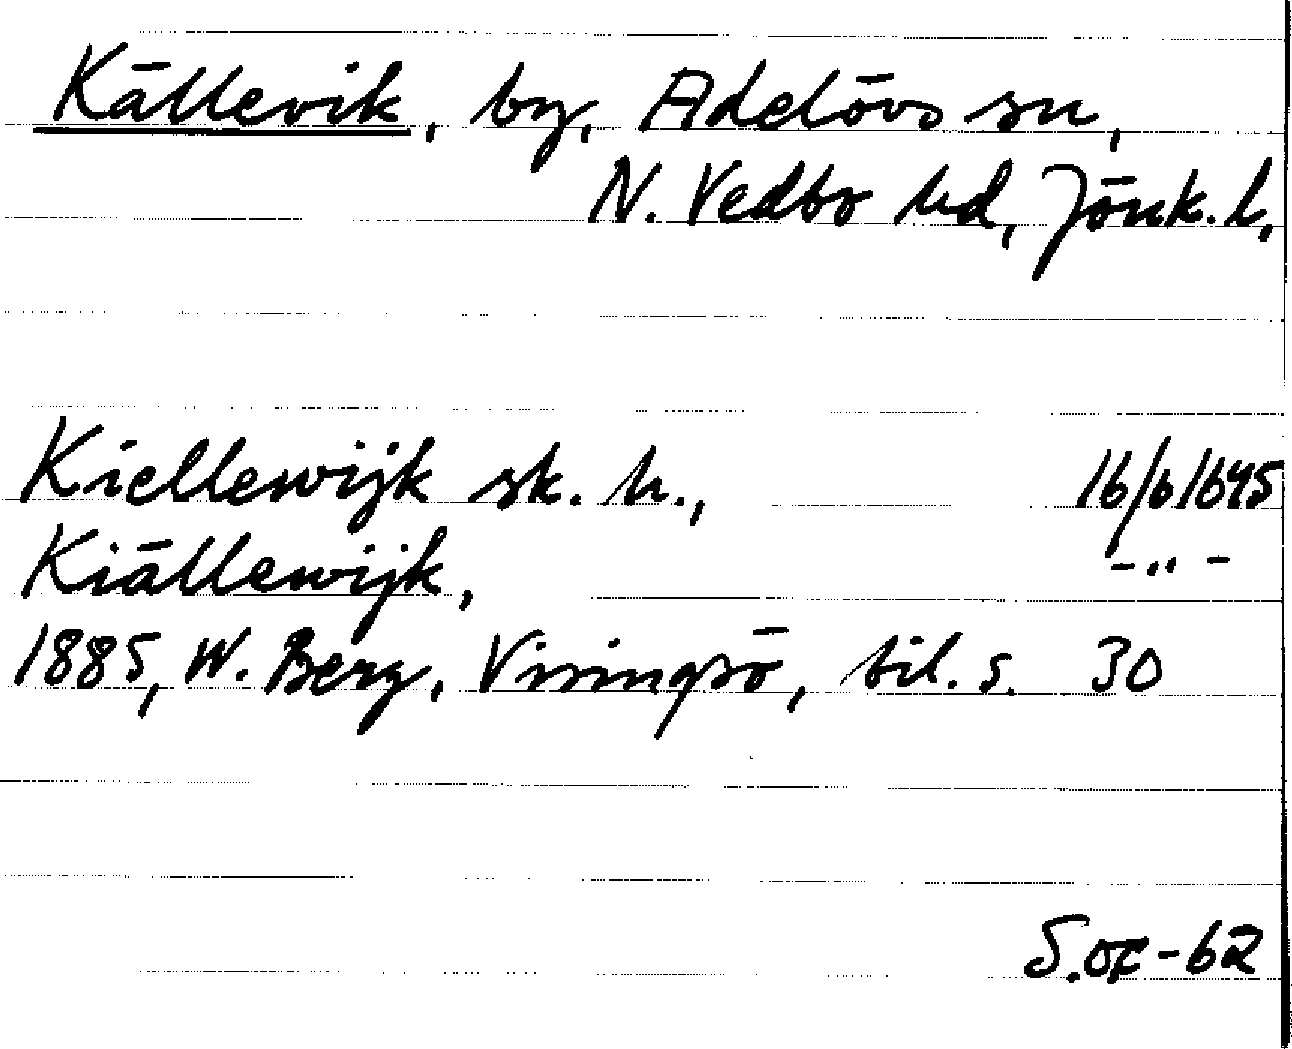 Källevik, by, Adelövs sn,
N. Vedbo hd, Jönk. l.
Kiellewijk sk. h., 16/6 1645
Kiällewijk, -"-
1885, W. Berg, Visingsö, bil. s. 30
S.oç-62